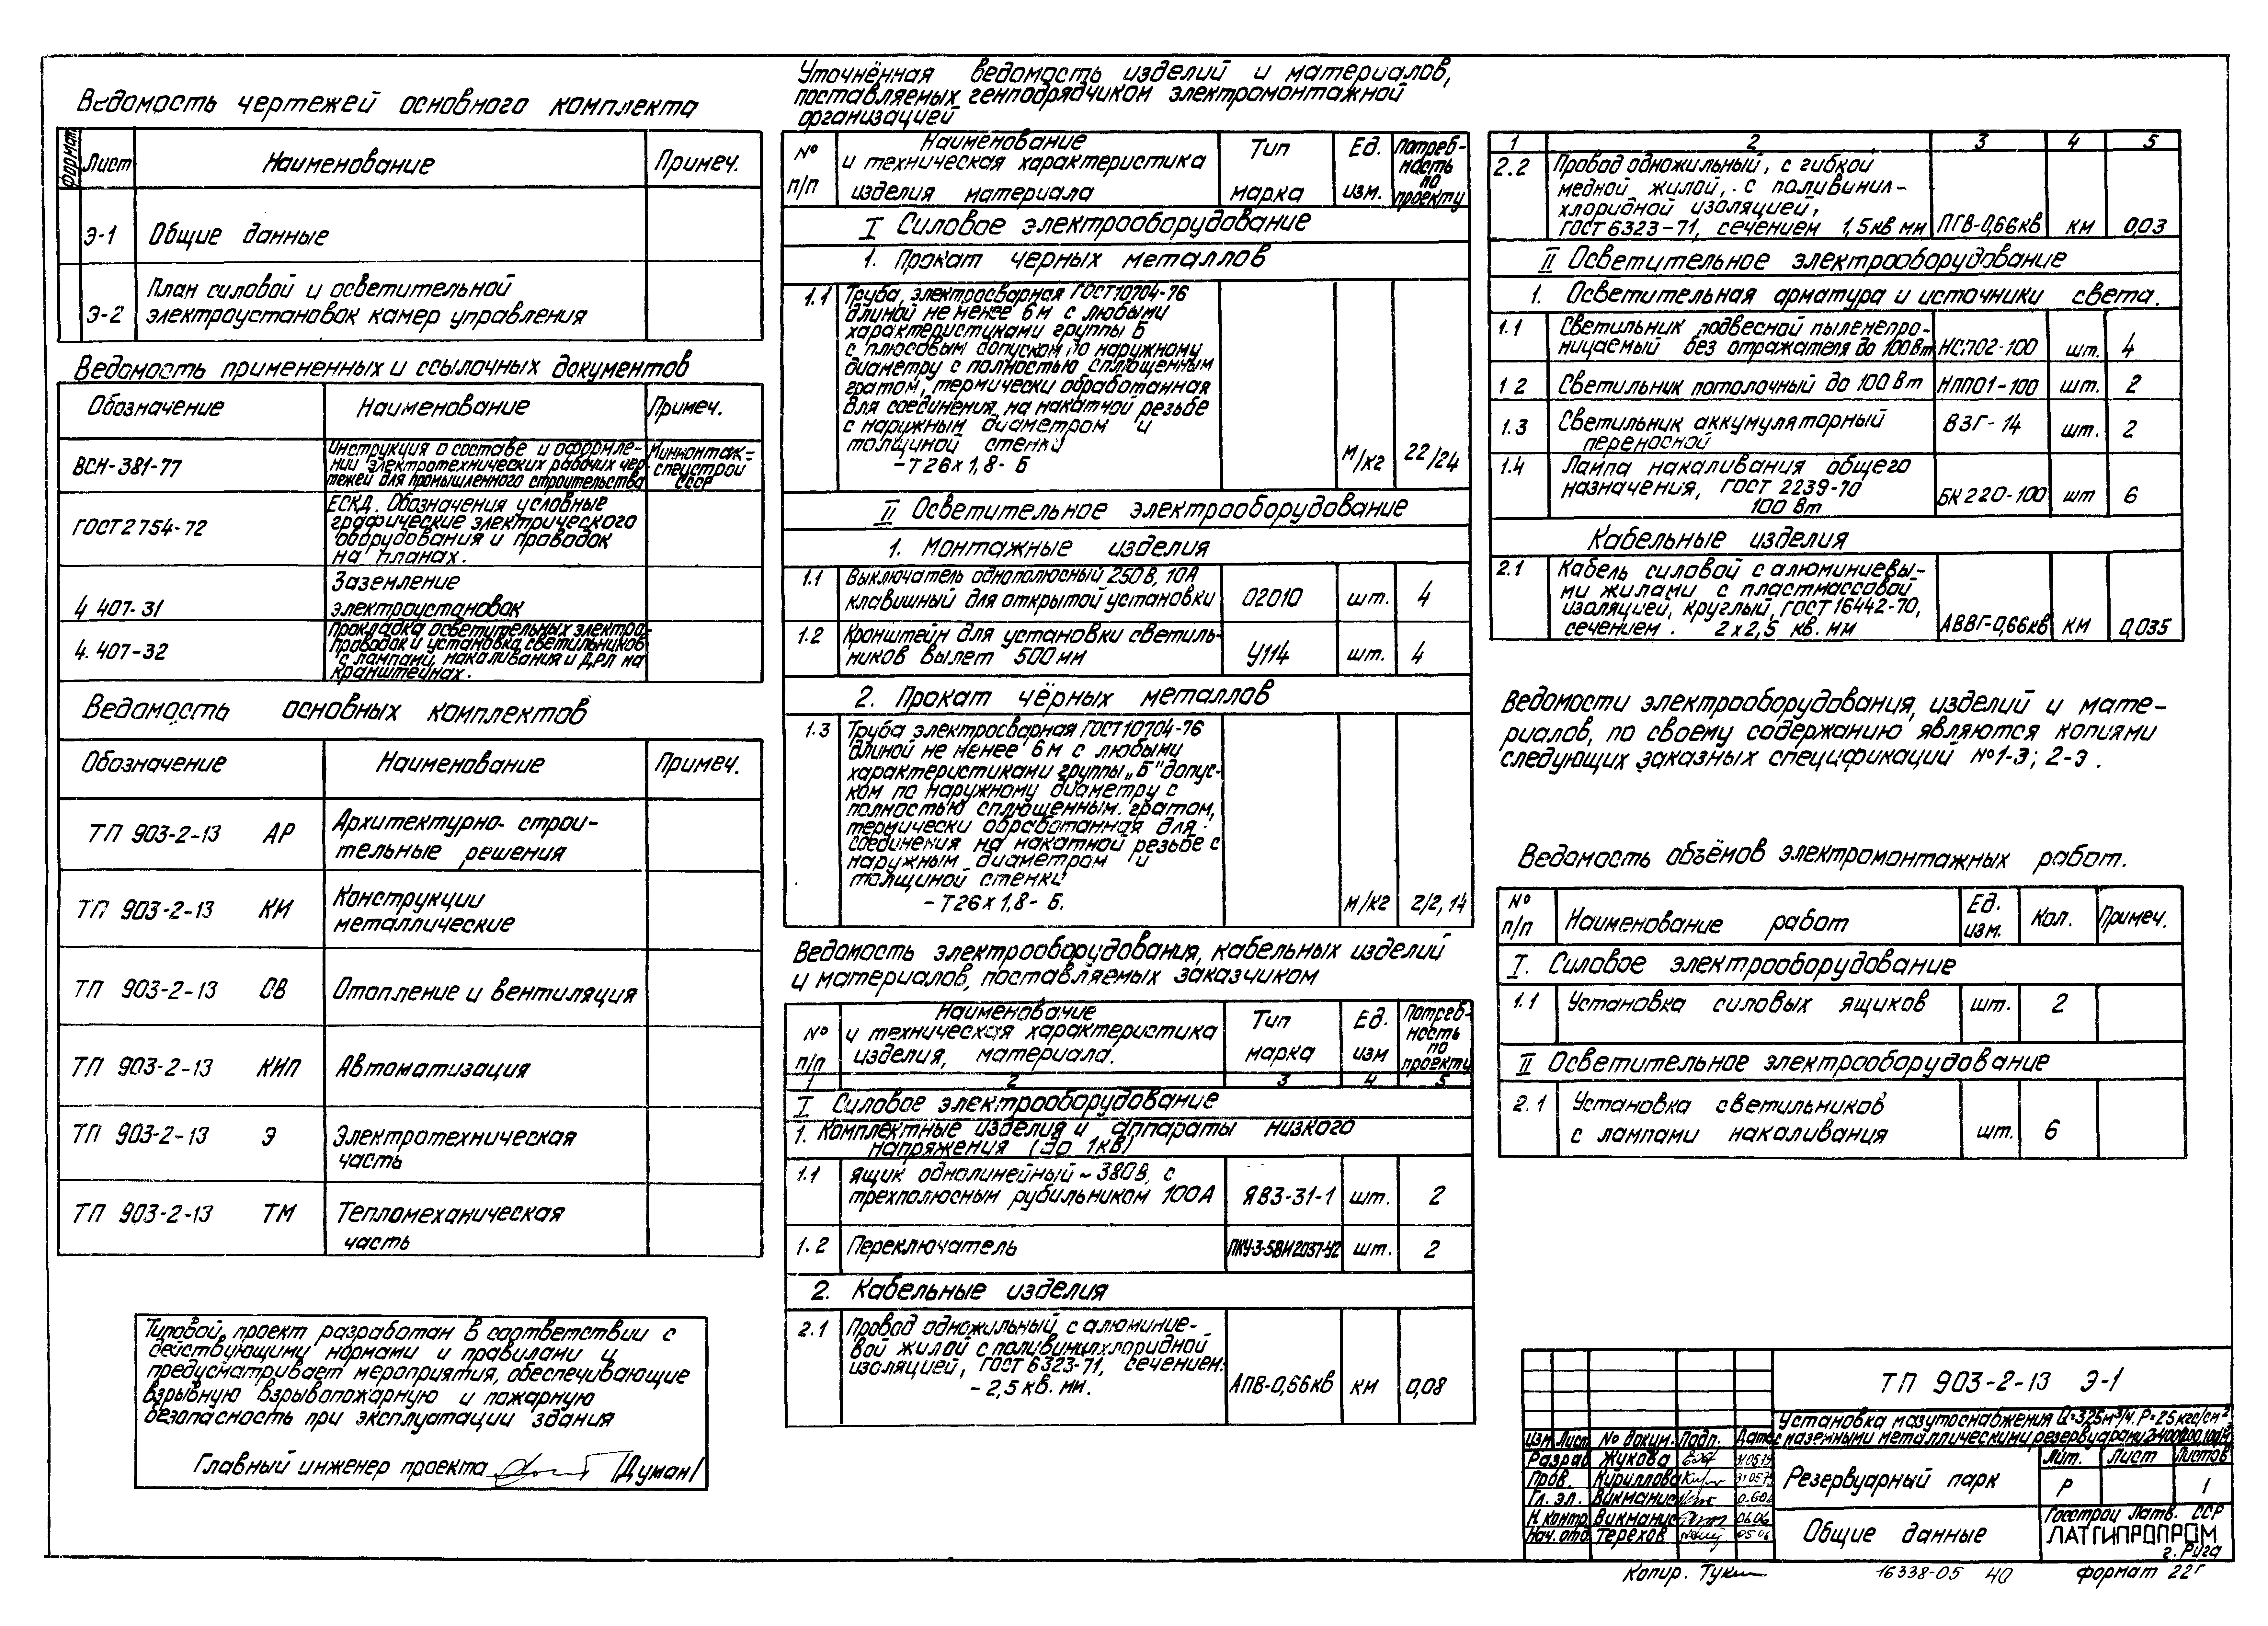 Ведомость чертежей основного комплекта
Формат Лист Наименование Примеч.
Э-1 Общие данные
План силовой и осветительной
Э-2 электроустановок камер управления
Ведомость примененных и ссылочных документов
Обозначение Наименование Примеч.
Инструкция о составе и оформле-
ВСН-381-77 нии электротехнических рабочих чер-
тежей для промышленного строительства
Минмонтаж-
спецстрой
СССР
ЕСКД. Обозначения условные
ГОСТ 2 754-72 графические электрического
оборудования и проводок
на планах.
Заземление
4 407-31 электроустановок
Прокладка осветительных электро-
4. 407-32 проводок и установка светильников
с лампами накаливания и ДРЛ на
кранштейнах.
Ведомость основных комплектов
Обозначение Наименование Примеч.
ТП 903-2-13 АР Архитектурно-строи-
тельные решения
ТП 903-2-13 КМ Конструкции
металлические
ТП 903-2-13 ОВ Отопление и вентиляция
ТП 903-2-13 КИП Автоматизация
ТП 903-2-13 Э Электротехническая
часть
ТП 903-2-13 ТМ Тепломеханическая
часть
Типовой проект разработан в соответствии с
действующими нормами и правилами и
предусматривает мероприятия, обеспечивающие
взрывную взрывопожарную и пожарную
безопасность при эксплуатации здания
Главный инженер проекта /Думан/
Уточнённая ведомость изделий и материалов,
поставляемых генподрядчиком электромонтажной
организацией
№ п/п Наименование и техническая характеристика изделия материала Тип марка Ед. изм. Потреб-ность по проекту
I Силовое электрооборудование
1. Прокат черных металлов
1.1 Труба, электросварная ГОСТ 10704-76
длиной не менее 6м с любыми
характеристиками группы Б
с плюсовым допуском по наружному
диаметру с полностью сплющенным
гратом, термически обработанная
для соединения на накатной резьбе
с наружным диаметром и
толщиной стенки
-Т26х1,8-Б м/кг 22/24
II Осветительное электрооборудование
1. Монтажные изделия
1.1 Выключатель однополюсный 250В, 10А
клавишный для открытой установки 02010 шт. 4
1.2 Кронштейн для установки светиль-
ников вылет 500мм У114 шт. 4
2. Прокат чёрных металлов
1.3 Труба электросварная ГОСТ 10704-76
длиной не менее 6м с любыми
характеристиками группы „Б" допус-
ком по наружному диаметру с
полностью сплющенным. гратом,
термически обработанная для
соединения на накатной резьбе с
наружным диаметром и
толщиной стенки
-Т26х1,8-Б. м/кг 2/2,14
Ведомость электрооборудования, кабельных изделий
и материалов, поставляемых заказчиком
№ п/п Наименование и техническая характеристика изделия, материала. Тип марка Ед. изм Потреб-ность по проекту
1 2 3 4 5
I Силовое электрооборудование
1. Комплектные изделия и аппараты низкого
напряжения (до 1кв)
1.1 ящик однолинейный ~380В, с
трехполюсным рубильником 100А ЯВЗ-31-1 шт. 2
1.2 Переключатель ПКУ-3-58И2037-У2 шт. 2
2. Кабельные изделия
2.1 Провод одножильный с алюминие-
вой жилой с поливинилхлоридной
изоляцией, ГОСТ 6323-71, сечением:
-2,5 кв. мм. АПВ-0,66кв км 0,08
1 2 3 4 5
2.2 Провод одножильный, с гибкой
медной жилой, с поливинил-
хлоридной изоляцией,
ГОСТ 6323-71, сечением 1,5 кв мм ПГВ-0,66кв км 0,03
II Осветительное электрооборудование
1. Осветительная арматура и источники света.
1.1 Светильник подвесной пыленепро-
ницаемый без отражателя до 100Вт НСП02-100 шт. 4
1 2 Светильник потолочный до 100 Вт НПП01-100 шт. 2
1.3 Светильник аккумуляторный
переносной ВЗГ-14 шт. 2
1.4 Лампа накаливания общего
назначения, ГОСТ 2239-70
100 Вт БК 220-100 шт 6
Кабельные изделия
2.1 Кабель силовой с алюминиевы-
ми жилами с пластмассовой
изоляцией, круглый, ГОСТ 16442-70,
сечением. 2х2,5 кв. мм АВВГ-0,66кв км 0,035
Ведомости электрооборудования, изделий и мате-
риалов, по своему содержанию являются копиями
следующих заказных спецификаций №1-Э; 2-Э.
Ведомость объёмов электромонтажных работ.
№ п/п Наименование работ Ед. изм. Кол. Примеч.
I. Силовое электрооборудование
1.1 Установка силовых ящиков шт. 2
II Осветительное электрооборудование
2.1 Установка светильников
с лампами накаливания шт. 6
ТП 903-2-13 Э-1
Установка мазутоснабжения Q=3,25м³/ч. Р=25кгс/см²
с наземными металлическими резервуарами
Изм Лист № докум. Подп. Дата
Разраб Жукова 31.05.79
Пров. Кириллова 31 05.79
Гл. эл. Викманис
Н. контр. Викманис 06.06
Нач. отд. Терехов 05 06
Резервуарный парк
Лит. Лист Листов
Р 1
Общие данные
Госстрой Латв. ССР
ЛАТГИПРОПРОМ
г. Рига
Копир. 16338-05 40 формат 22г